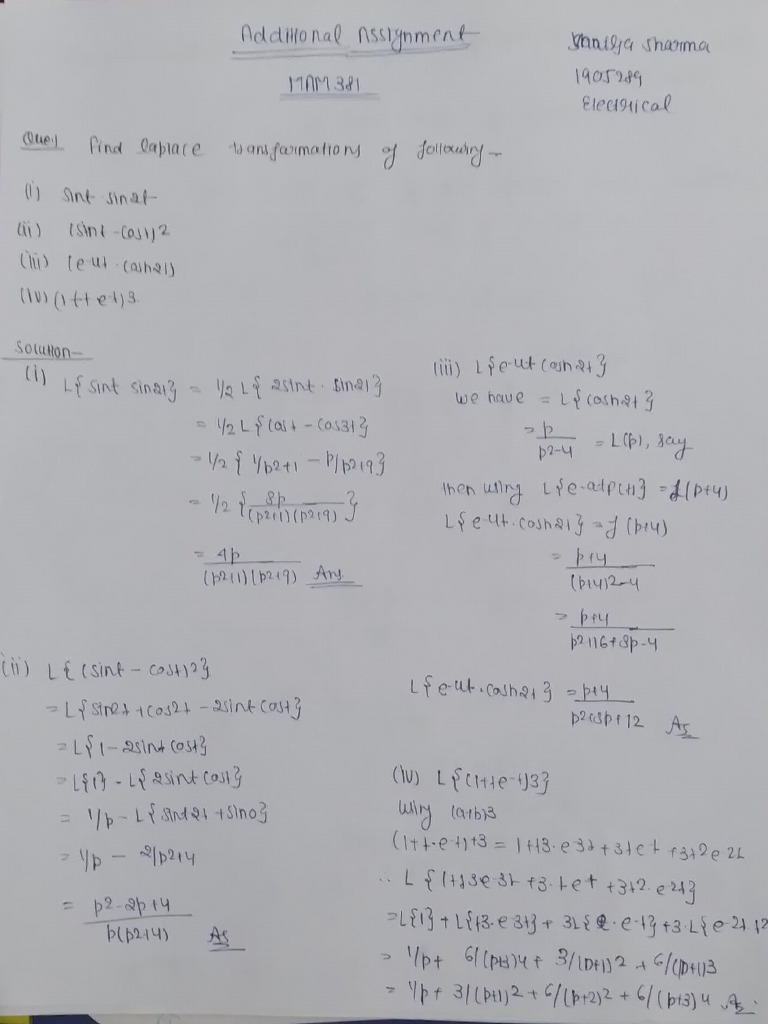 Additional Assignment
MAM 381
Sharma
1905289
Electrical
Que.1 Find laplace transformations of following -
(i) sint sin2t
(ii) (sint - cost)2
(iii) (e-4t . cosh2t)
(iv) (1+t e-t)3
Solution -
(i) L{ sint sin2t} = 1/2 L{ 2sint . sin2t}
= 1/2 L{ cost - cos3t}
= 1/2 { 1/p2+1 - p/p2+9}
= 1/2 { 8p / (p2+1)(p2+9) }
= 4p / (p2+1)(p2+9) Ans
(ii) L{ (sint - cost)2}
= L{ sin2t + cos2t - 2sint cost}
= L{1 - 2sint cost}
= L{1} - L{ 2sint cost}
= 1/p - L{ sin2t + sin0}
= 1/p - 2/p2+4
= p2-2p+4 / p(p2+4) As
(iii) L{e-4t cosh2t}
we have = L{cosh2t}
= p / p2-4 = L(p), say
then using L{e-atf(t)} = f(p+4)
L{e-4t.cosh2t} = f (p+4)
= p+4 / (p+4)2-4
= p+4 / p2+16+8p-4
L{e-4t.cosh2t} = p+4 / p2+8p+12 As
(iv) L{(1+te-t)3}
using (a+b)3
(1+t.e-t)+3 = 1+t3.e-3t + 3te-t + 3t2e-2t
∴ L {1+t3e-3t +3.te-t +3t2.e-2t}
= L{1} + L{t3.e-3t} + 3L{t.e-t} +3.L{e-2t.t2
= 1/p + 6/(p+3)4 + 3/(p+1)2 + 6/(p+1)3
= 1/p + 3/(p+1)2 + 6/(p+2)2 + 6/(p+3)4 As